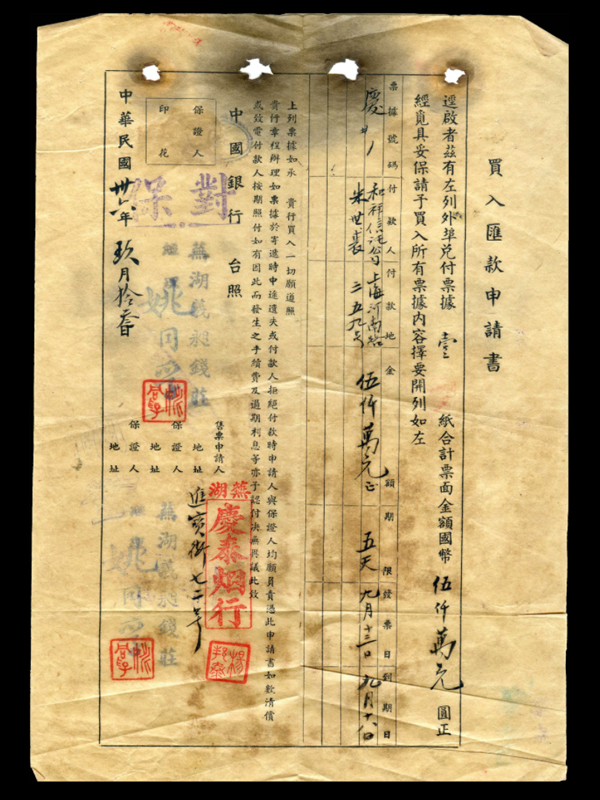 買入匯款申請書
逕啟者茲有左列外埠兌付票據 壹 紙合計票面金額國幣 伍仟萬元 圓正
經覓具妥保請予買入所有票據內容擇要開列如左
票據號碼 付款人 付款地 金額 期限 發票日 到期日
慶 #1 和祥信託公司 上海河南路 伍仟萬元正 五天 九月十三日 九月十八日
朱世裘 三五九号
上列票據如承 貴行買入一切願遵照
貴行章程辦理如票據於寄遞時中途遺失或付款人拒絕付款時申請人與保證人均願負責憑此申請書如數清償
或致電付款人按期照付如有因此而發生之手續費及過期利息等亦予認付決無異議此致
中國銀行 台照
售票申請人 蕪湖 慶泰烟行
地址 進寶街七二号
保證人 蕪湖義昶錢莊
地址
保證人
地址
保證人
印花
對保
蕪湖義昶錢莊
中華民國 卅六年 玖月拾叁